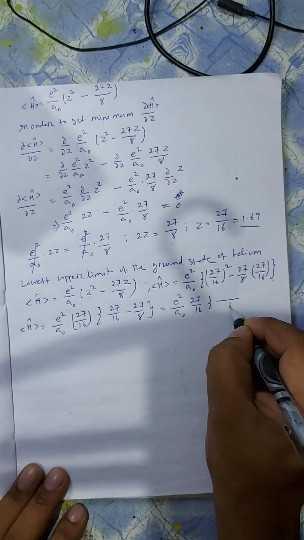 <Ĥ> = e²/a₀ (Z² - 27Z/8)
In order to get minimum ∂<Ĥ>/∂Z
∂<Ĥ>/∂Z = ∂/∂Z e²/a₀ (Z² - 27Z/8)
= ∂/∂Z e²/a₀ Z² - ∂/∂Z e²/a₀ 27/8 Z
∂<Ĥ>/∂Z = e²/a₀ ∂/∂Z Z² - e²/a₀ 27/8 ∂/∂Z Z
⇒ e²/a₀ 2Z - e²/a₀ 27/8 = 0
e²/a₀ · 2Z = e²/a₀ · 27/8 ; 2Z = 27/8 ; Z = 27/16 = 1.69
Lowest upper limit of the ground state of helium
<Ĥ> = e²/a₀ (Z² - 27Z/8) , <Ĥ> = e²/a₀ {(27/16)² - 27/8 (27/16)}
<Ĥ> = e²/a₀ (27/16) { 27/16 - 27/8 } = e²/a₀ 27/16 {